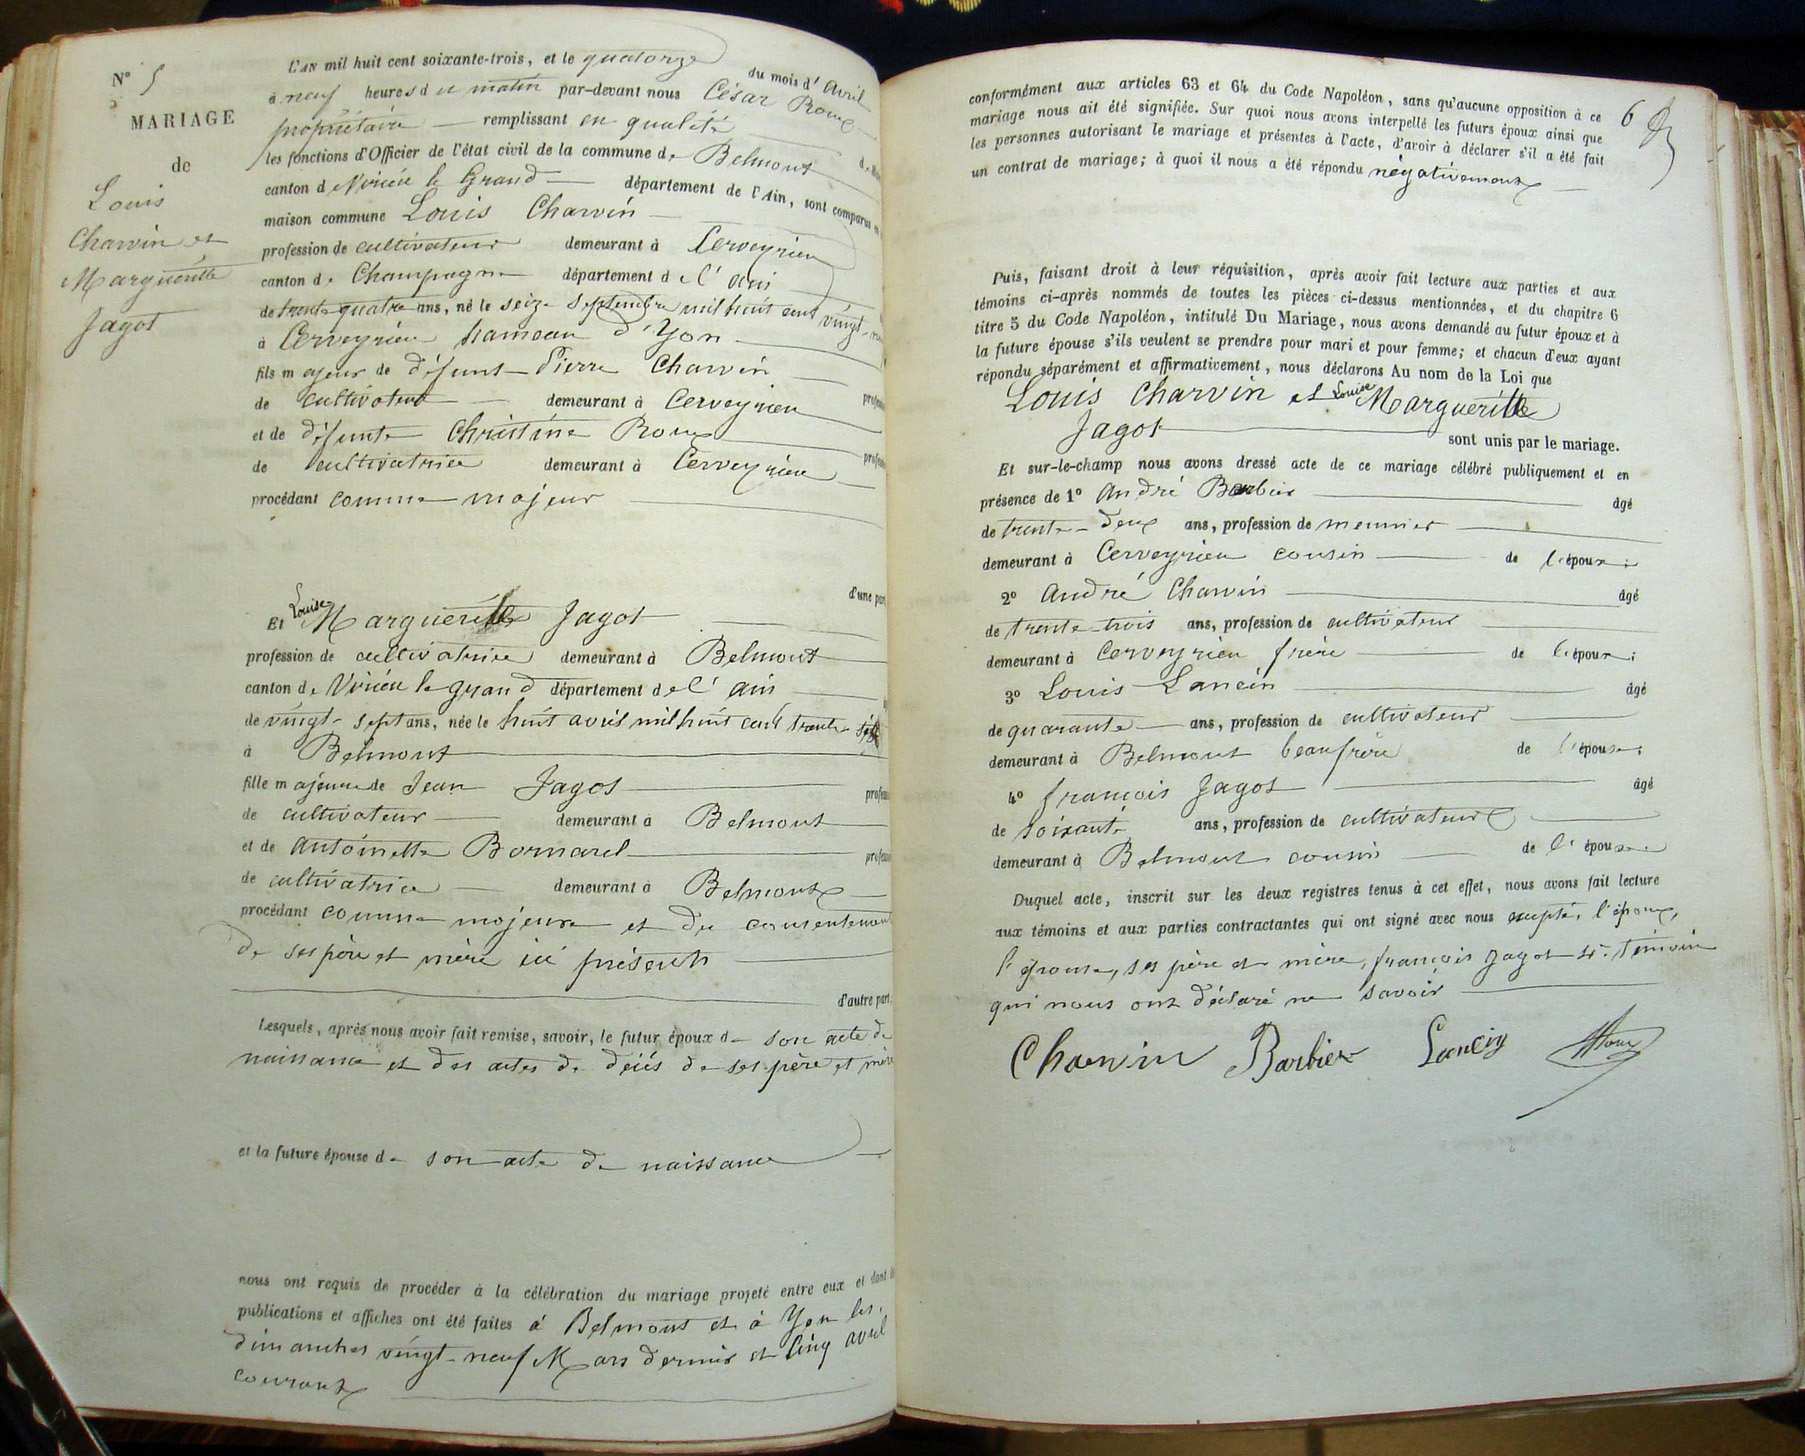 N° 5
MARIAGE
de
Louis
Charvin et
Margueritte
Jagot
L'AN mil huit cent soixante-trois, et le quatorze du mois d'Avril
à neuf heures du matin par-devant nous César Roux
propriétaire remplissant en qualité
les fonctions d'Officier de l'état civil de la commune de Belmont
canton de Virieu le Grand département de l'Ain, sont comparus en
maison commune Louis Charvin
profession de cultivateur demeurant à Cerveyrieu
canton de Champagne département de l'ain
de trente quatre ans, né le seize septembre mil huit cent vingt
à Cerveyrieu hameau d'Yon
fils majeur de défunt Pierre Charvin
de cultivateur demeurant à Cerveyrieu
et de défunte Christine Roux
de cultivatrice demeurant à Cerveyrieu
procédant comme majeur
d'une part
Et Louise Margueritte Jagot
profession de cultivatrice demeurant à Belmont
canton de Virieu le grand département de l'ain
de vingt-sept ans, née le huit avril mil huit cent trente
à Belmont
fille majeure de Jean Jagot
de cultivateur demeurant à Belmont
et de Antoinette Bornarel
de cultivatrice demeurant à Belmont
procédant comme majeure et du consentement
de ses père et mère ici présents
d'autre part.
Lesquels, après nous avoir fait remise, savoir, le futur époux de son acte de
naissance et des actes de décès de ses père et mère
et la future épouse de son acte de naissance
nous ont requis de procéder à la célébration du mariage projeté entre eux et dont les
publications et affiches ont été faites à Belmont et à Yon les
dimanches vingt-neuf Mars dernier et cinq avril
courant
6
conformément aux articles 63 et 64 du Code Napoléon, sans qu'aucune opposition à ce
mariage nous ait été signifiée. Sur quoi nous avons interpellé les futurs époux ainsi que
les personnes autorisant le mariage et présentes à l'acte, d'avoir à déclarer s'il a été fait
un contrat de mariage; à quoi il nous a été répondu négativement
Puis, faisant droit à leur réquisition, après avoir fait lecture aux parties et aux
témoins ci-après nommés de toutes les pièces ci-dessus mentionnées, et du chapitre 6
titre 5 du Code Napoléon, intitulé Du Mariage, nous avons demandé au futur époux et à
la future épouse s'ils veulent se prendre pour mari et pour femme; et chacun d'eux ayant
répondu séparément et affirmativement, nous déclarons Au nom de la Loi que
Louis Charvin et Louise Margueritte
Jagot sont unis par le mariage.
Et sur-le-champ nous avons dressé acte de ce mariage célébré publiquement et en
présence de 1° André Barbier âgé
de trente-deux ans, profession de meunier
demeurant à Cerveyrieu cousin de l'époux;
2° André Charvin âgé
de trente-trois ans, profession de cultivateur
demeurant à Cerveyrieu frère de l'époux;
3° Louis Lancin âgé
de quarante ans, profession de cultivateur
demeurant à Belmont beaufrère de l'épouse;
4° françois Jagot âgé
de soixante ans, profession de cultivateur
demeurant à Belmont cousin de l'épouse
Duquel acte, inscrit sur les deux registres tenus à cet effet, nous avons fait lecture
aux témoins et aux parties contractantes qui ont signé avec nous excepté, l'époux,
l'épouse, ses père et mère, françois Jagot 4e témoin
qui nous ont déclaré ne savoir
Charvin Barbier Lancin Roux